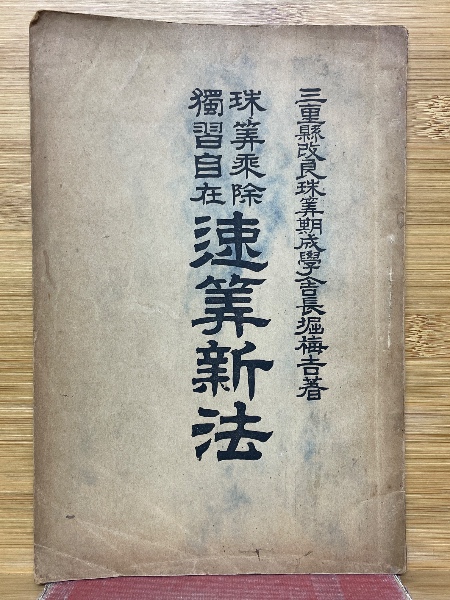 三重縣改良珠筭期成學舎長堀梅吉著
珠筭乘除
獨習自在
速筭新法